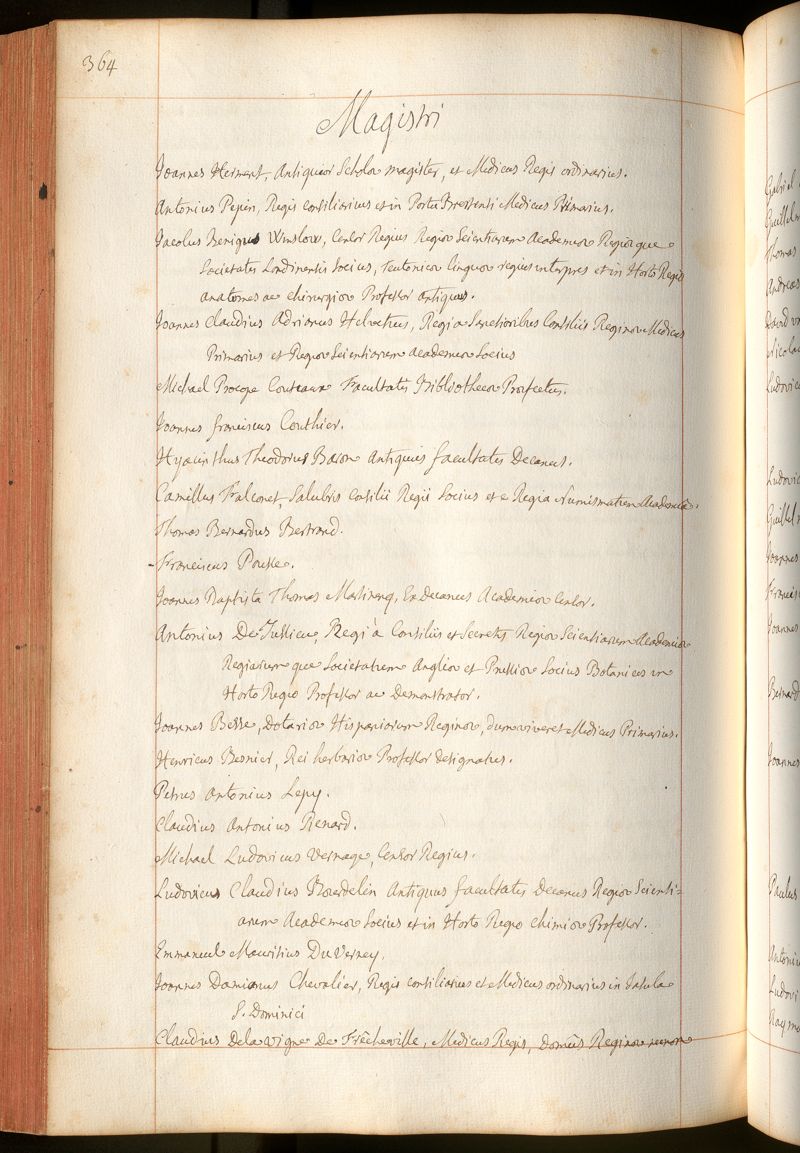 364
Magistri
Joannes Herment, Antiquior Scholæ magister, et Medicus Regis ordinarius.
Antonius Pepin, Regis consiliarius et in Portu Brestensi Medicus Primarius.
Jacobus Benignus Winslow, Censor Regius Regiæ Scientiarum Academiæ Regiæque
Societatis Londinensis Socius, teutonicæ linguæ regius interpres et in Horto Regio
anatomes ac chirurgiæ Professor antiquus.
Joannes Claudius Adrianus Helvetius, Regi a Sanctioribus Consiliis Reginæ Medicus
Primarius et Regiæ Scientiarum academiæ Socius
Michael Procope Couteaux Facultatis Bibliothecæ Præfectus.
Joannes franciscus Couthier.
Hyacinthus Theodorus Baron Antiquus facultatis Decanus.
Camillus Falconet, Salubris consilii Regii Socius et e Regia Numismatum Academiâ.
Thomas Bernardus Bertrand.
Franciscus Pousse.
Joannes Baptista Thomas Martinenq, Ex Decanus Academiæ Censor.
Antonius De Jussieu, Regi à Consiliis et Secretis Regiæ Scientiarum Academiæ
Regiarum que Societatum Angliæ et Prussiæ Socius Botanices in
Horto Regio Professor ac Demonstrator.
Joannes Besse, Dotariæ Hispaniarum Reginæ, dum viveret Medicus Primarius.
Henricus Besnier, Rei herbariæ Professor designatus.
Petrus Antonius Lepy.
Claudius Antonius Renard.
Michael Ludovicus Vernage, Censor Regius.
Ludovicus Claudius Bourdelin Antiquus facultatis Decanus Regiæ Scienti=
arum Academiæ Socius et in Horto Regio chimiæ Professor.
Emmanuel Mauritius Du Verney.
Joannes Damianus Chevalier, Regis consiliarius et Medicus ordinarius in Insula
S. Dominici
Claudius Dela vigne De Frêcheville, Medicus Regis, Domûs Reginæ necnon
Gabriel
Thomas
Andreas
David
Nicolaus
Ludovicus
Ludovic
Joannes
Francis
Joannes
Bernard
Joannes
Paulus
Antoniu
Ludovi
Raym